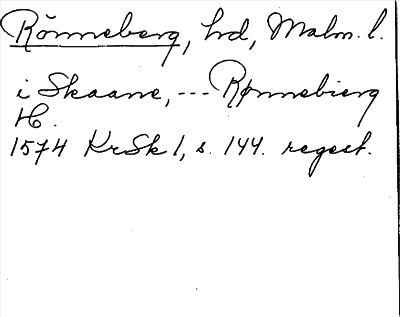 Rönneberg, hd, Malm. l.
i Skaane, --- Rønnebierg
H.
1574 KrSk 1, s. 144. regest.